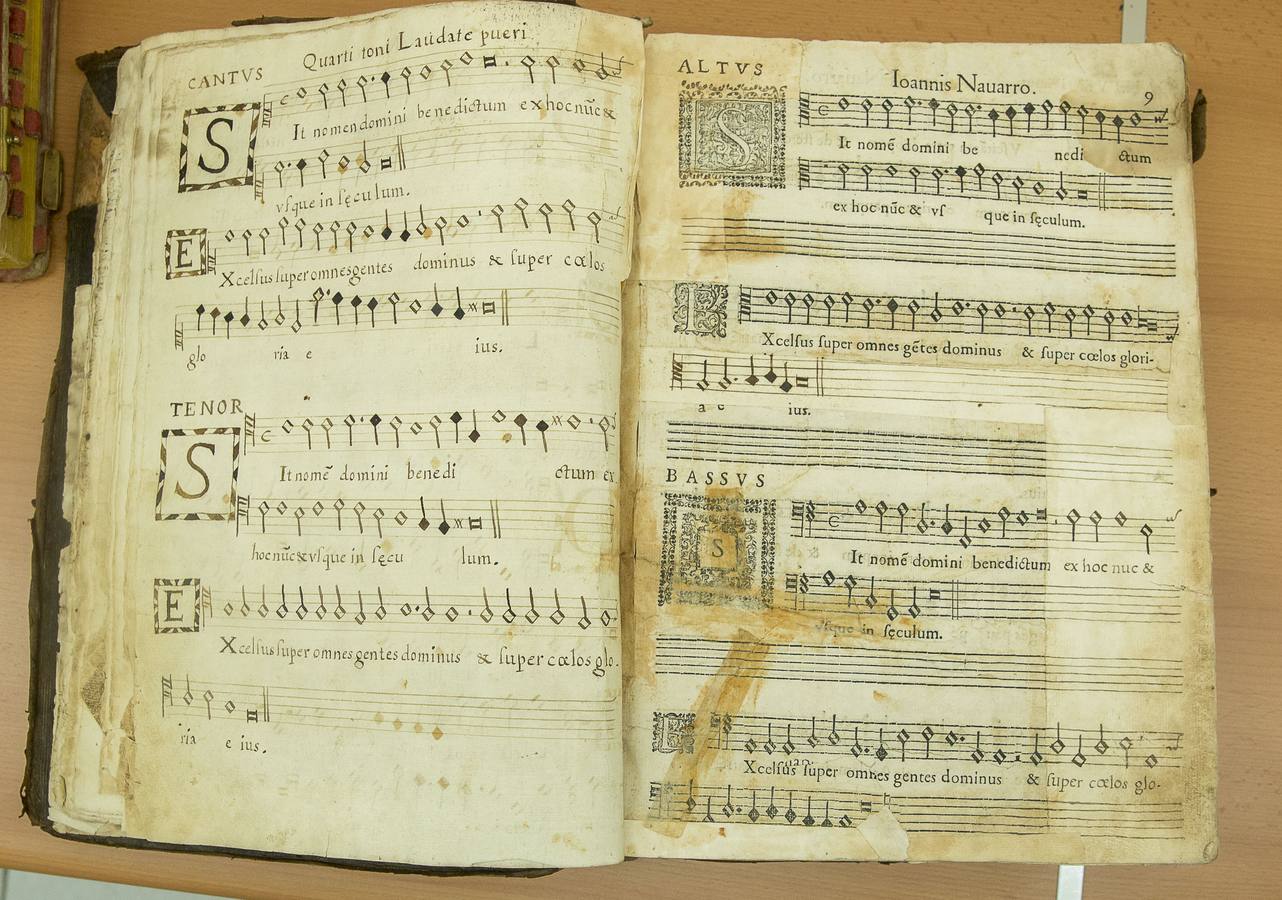 Quarti toni Laudate pueri
CANTVS
S
It nomen domini benedictum ex hoc nũc &
vſque in ſęculum.
E
Xcelſus ſuper omnes gentes dominus & ſuper cœlos
glo ria e ius.
TENOR
S
It nomẽ domini benedi ctum ex
hoc nũc & vſque in ſęcu lum.
E
Xcelſus ſuper omnes gentes dominus & ſuper cœlos glo-
ria e ius.
ALTVS
Ioannis Nauarro.
9
S
It nomẽ domini be nedi ctum
ex hoc nũc & vſ que in ſęculum.
E
Xcelſus ſuper omnes gẽtes dominus & ſuper cœlos glori-
a e ius.
BASSVS
S
It nomẽ domini benedictum ex hoc nuc &
vſque in ſęculum.
E
Xcelſus ſuper omnes gentes dominus & ſuper cœlos glo-